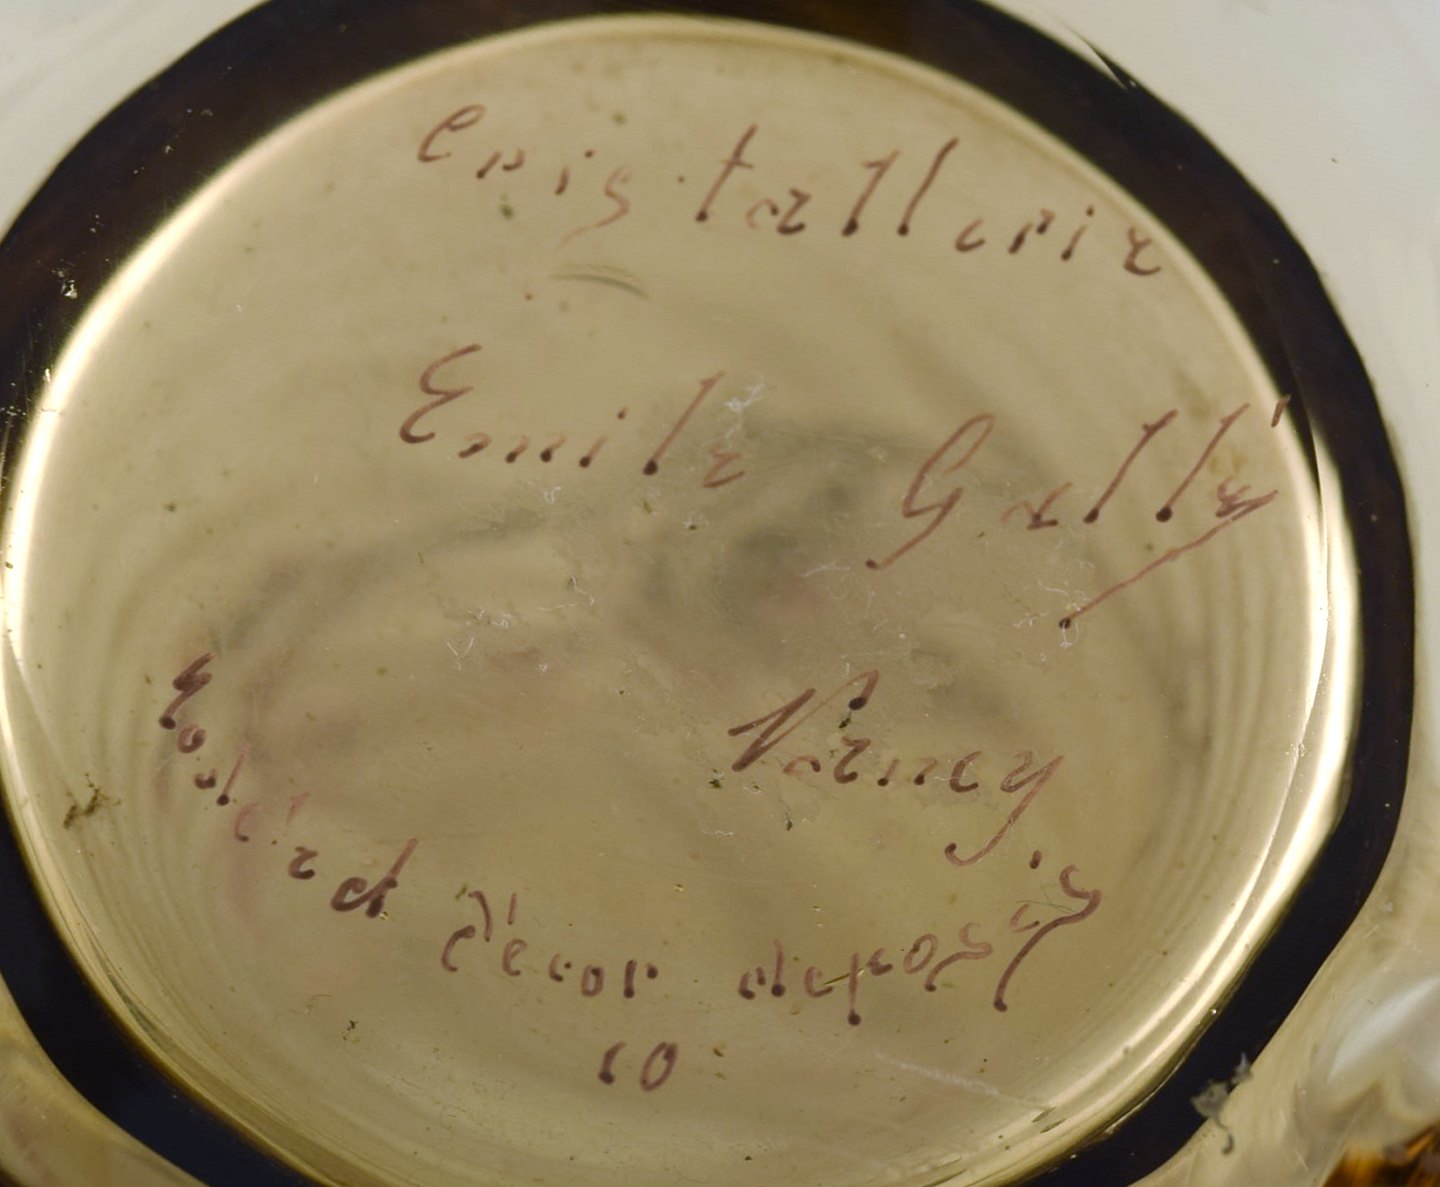 Cristallerie
Emile Gallé
Nancy
Modele et décor déposés
10